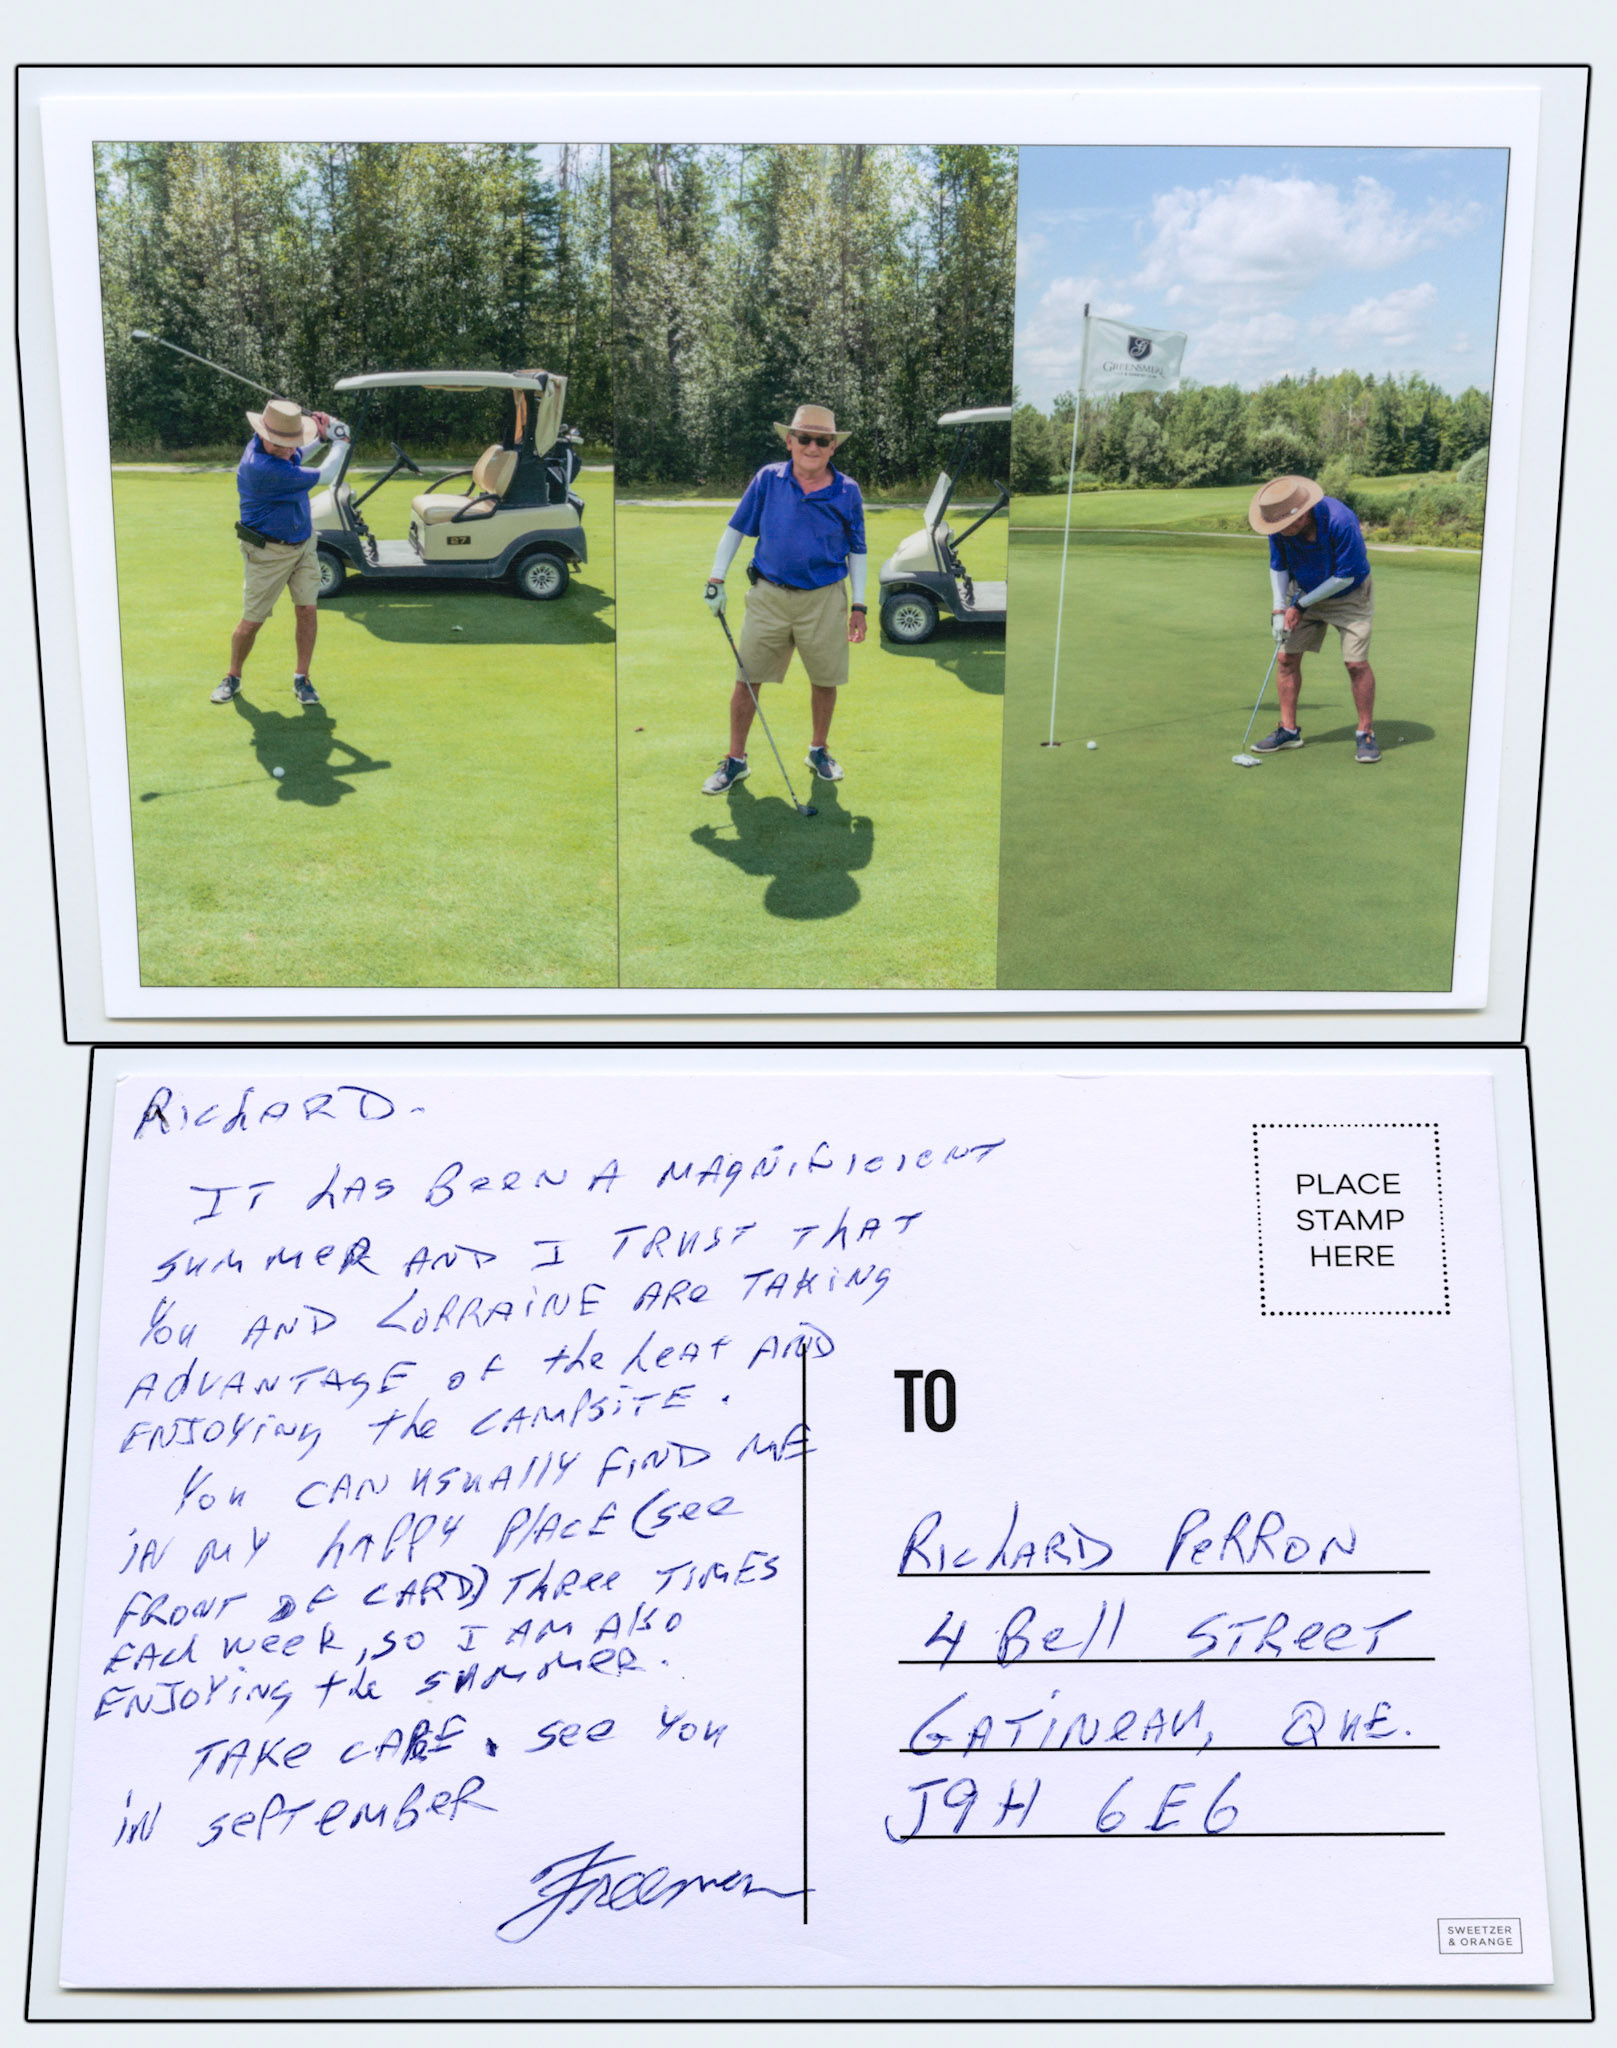 27
GREENSMERE
RICHARD-
IT HAS BEEN A MAGNIFICIENT
SUMMER AND I TRUST THAT
YOU AND LORRAINE ARE TAKING
ADVANTAGE OF the heat AND
ENJOYING the CAMPSITE.
YOU CAN USUALLY FIND ME
IN MY HAPPY PLACE (see
FRONT OF CARD) THREE TIMES
EACH WEEK, SO I AM ALSO
ENJOYING the SUMMER.
TAKE CARE. SEE YOU
IN SEPTEMBER
Freeman
PLACE
STAMP
HERE
TO
RICHARD PERRON
4 Bell STREET
GATINEAU, QUE.
J9H 6E6
SWEETZER
& ORANGE